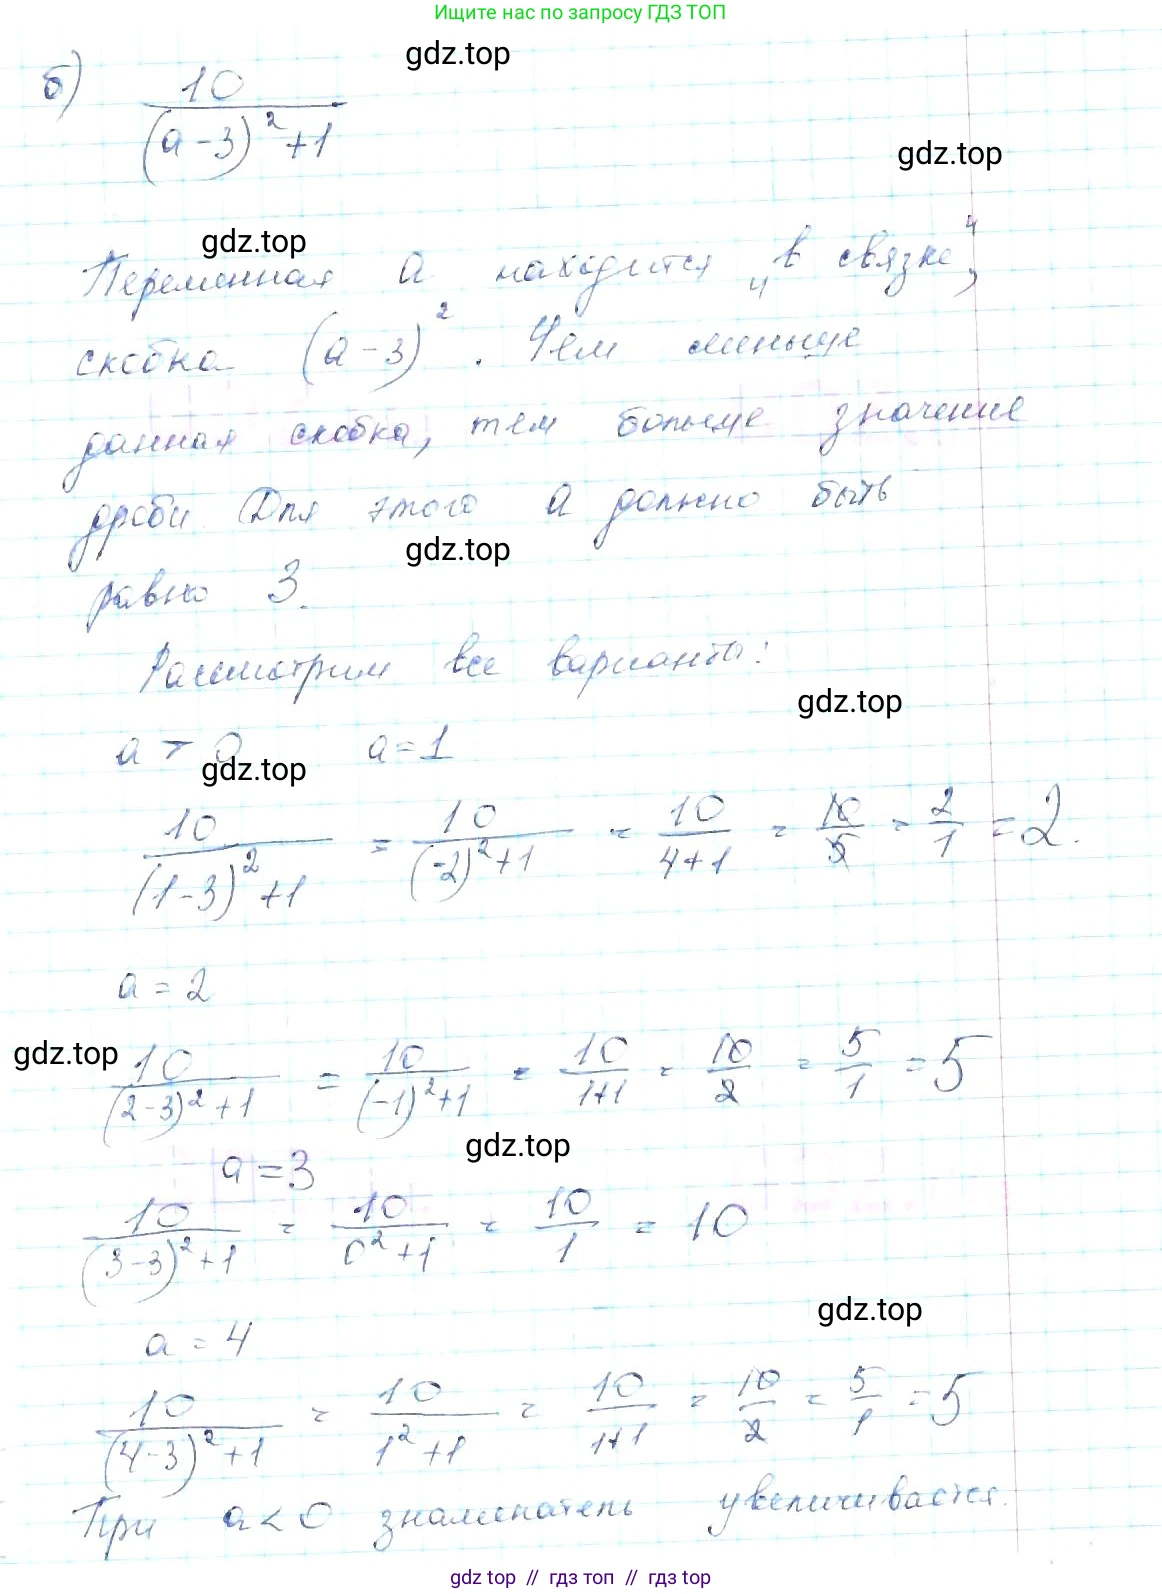 Ищите нас по запросу ГДЗ ТОП
gdz.top
б) 10 / ((a-3)² + 1)
gdz.top
gdz.top
Переменная a находится „в связке“,
скобка (a-3)². Чем меньше
данная скобка, тем больше значение
дроби. Для этого a должно быть
gdz.top
равно 3.
Рассмотрим все варианты:
gdz.top
a > 0 a = 1
gdz.top
10 / ((1-3)² + 1) = 10 / ((-2)² + 1) = 10 / (4+1) = 10/5 = 2/1 = 2.
a = 2
gdz.top
10 / ((2-3)² + 1) = 10 / ((-1)² + 1) = 10 / (1+1) = 10/2 = 5/1 = 5
gdz.top
a = 3
10 / ((3-3)² + 1) = 10 / (0² + 1) = 10/1 = 10
gdz.top
a = 4
10 / ((4-3)² + 1) = 10 / (1² + 1) = 10 / (1+1) = 10/2 = 5/1 = 5
При a < 0 знаменатель увеличивается.
gdz.top // гдз топ // гдз top